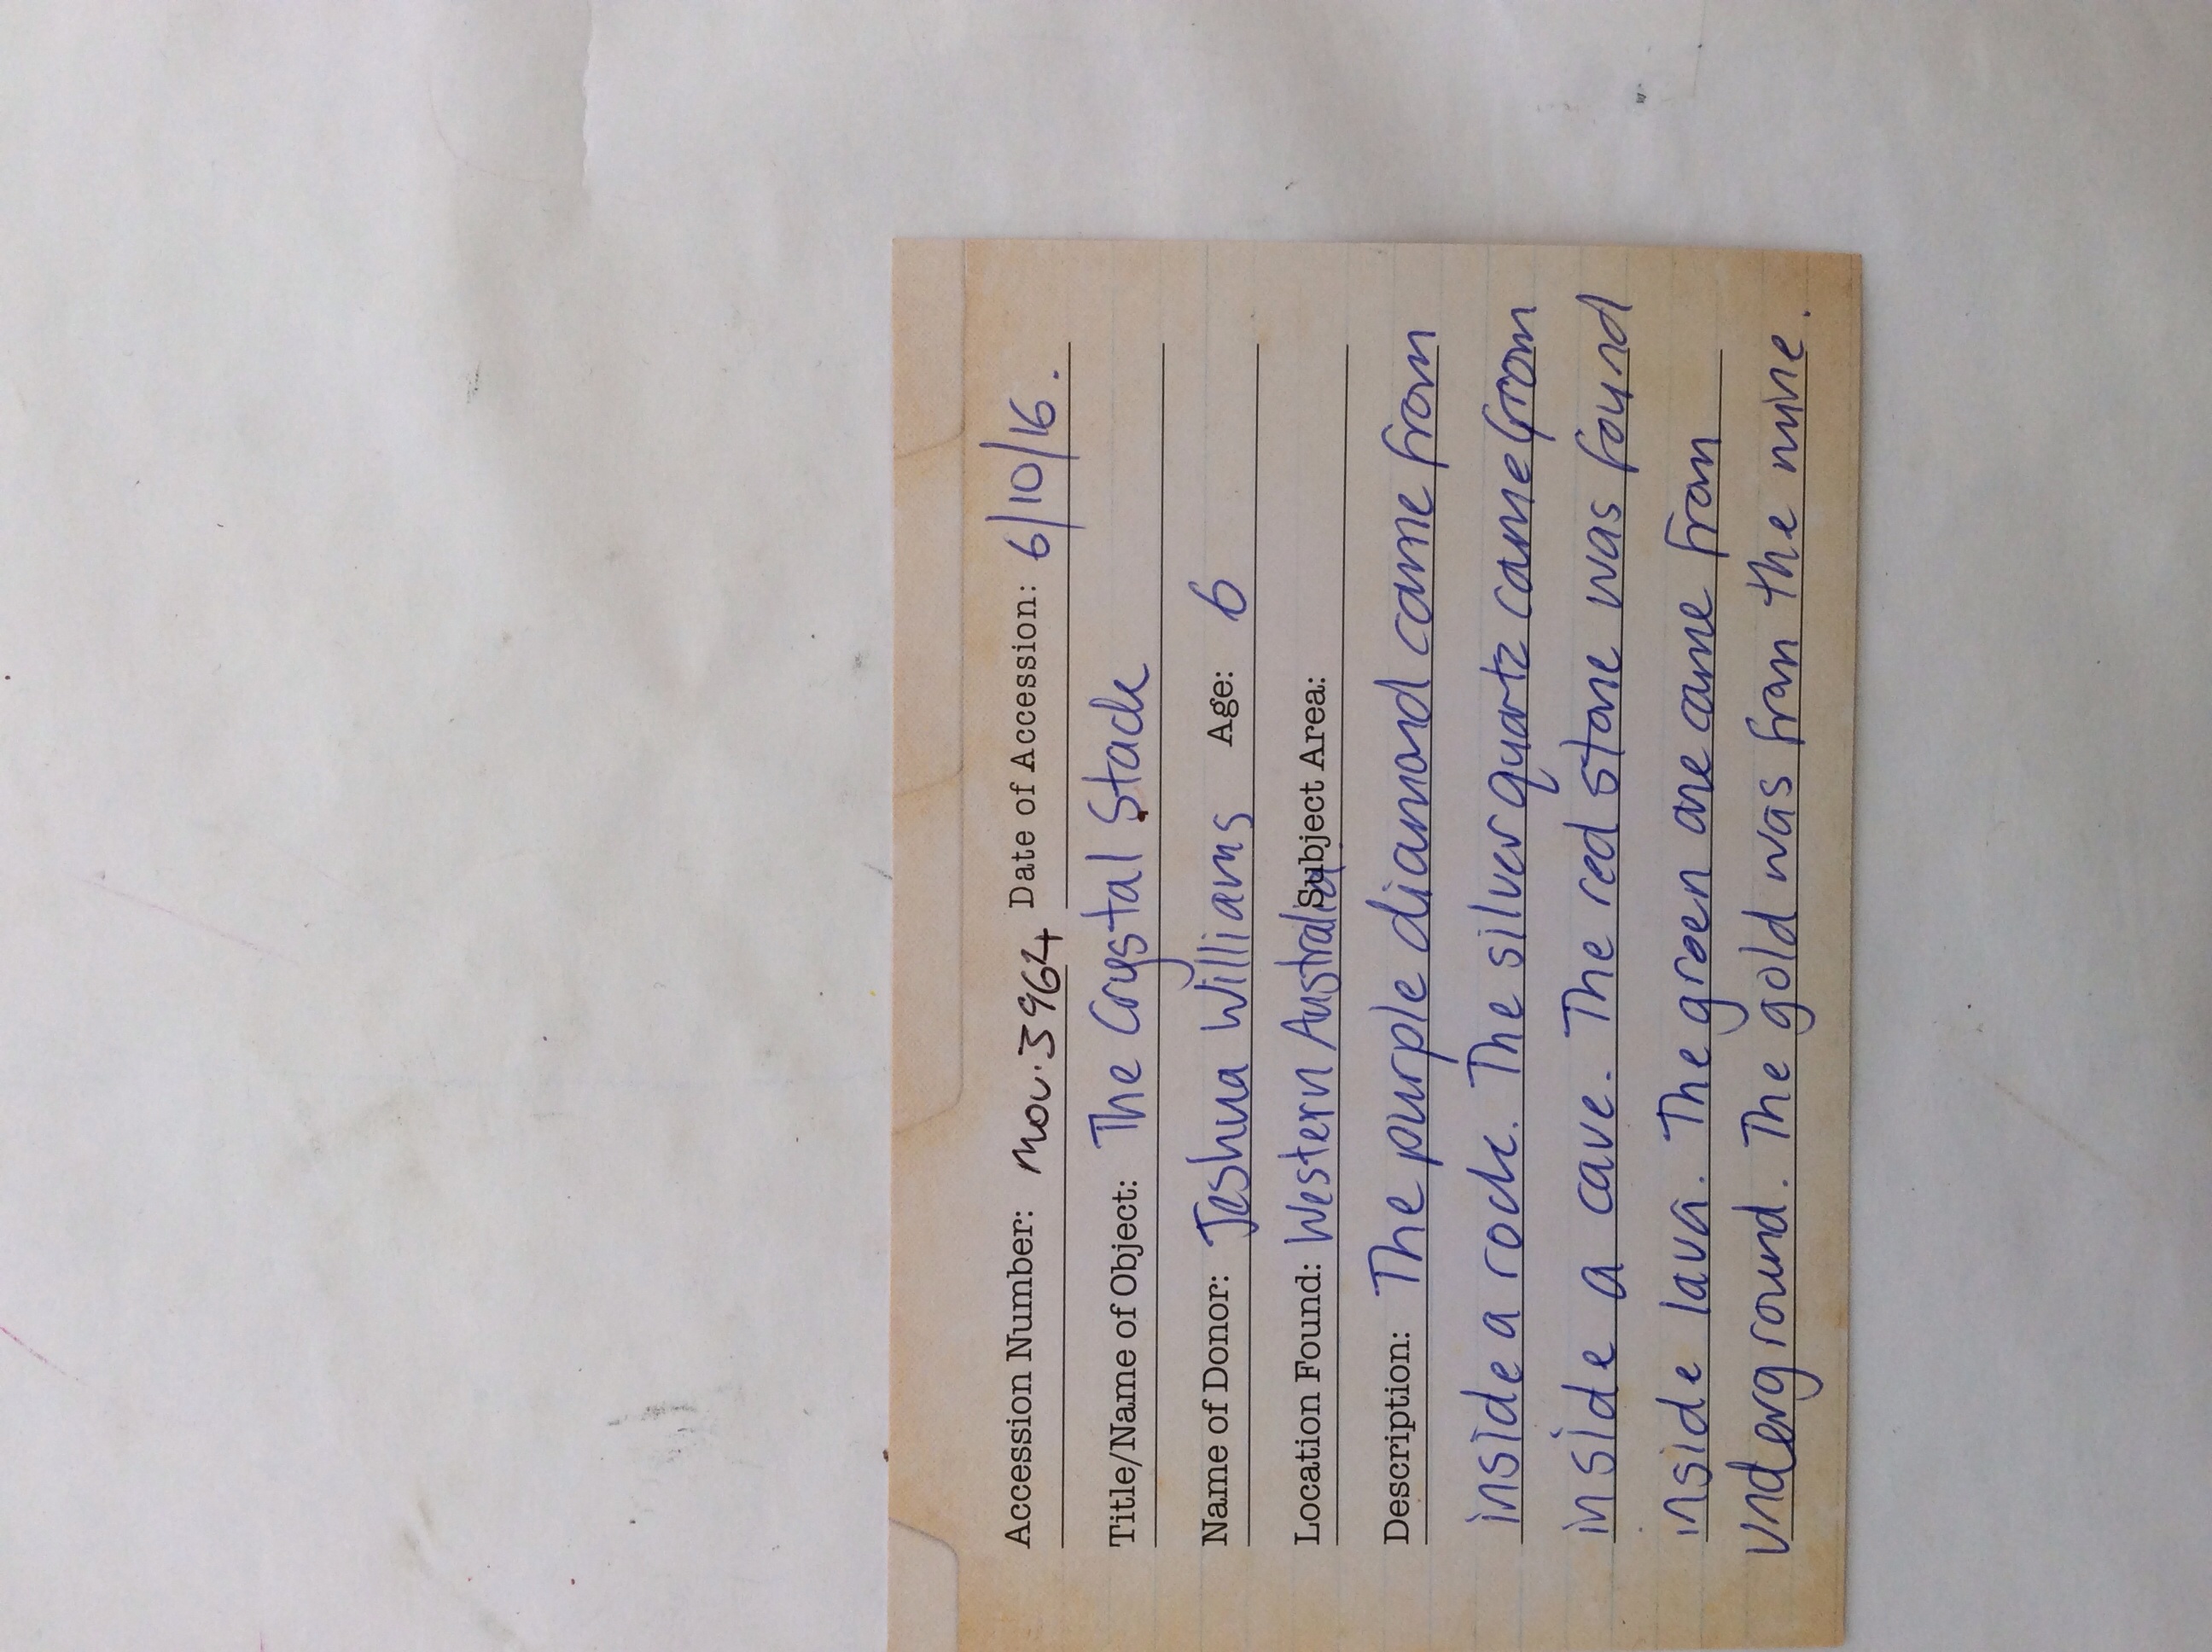 Accession Number: mov.3964 Date of Accession: 6/10/16.
Title/Name of Object: The Crystal Stack
Name of Donor: Joshua Williams Age: 6
Location Found: Western Australia Subject Area:
Description: The purple diamond came from
inside a rock. The silver quartz came from
inside a cave. The red stone was found
inside lava. The green one came from
underground. The gold was from the mine.